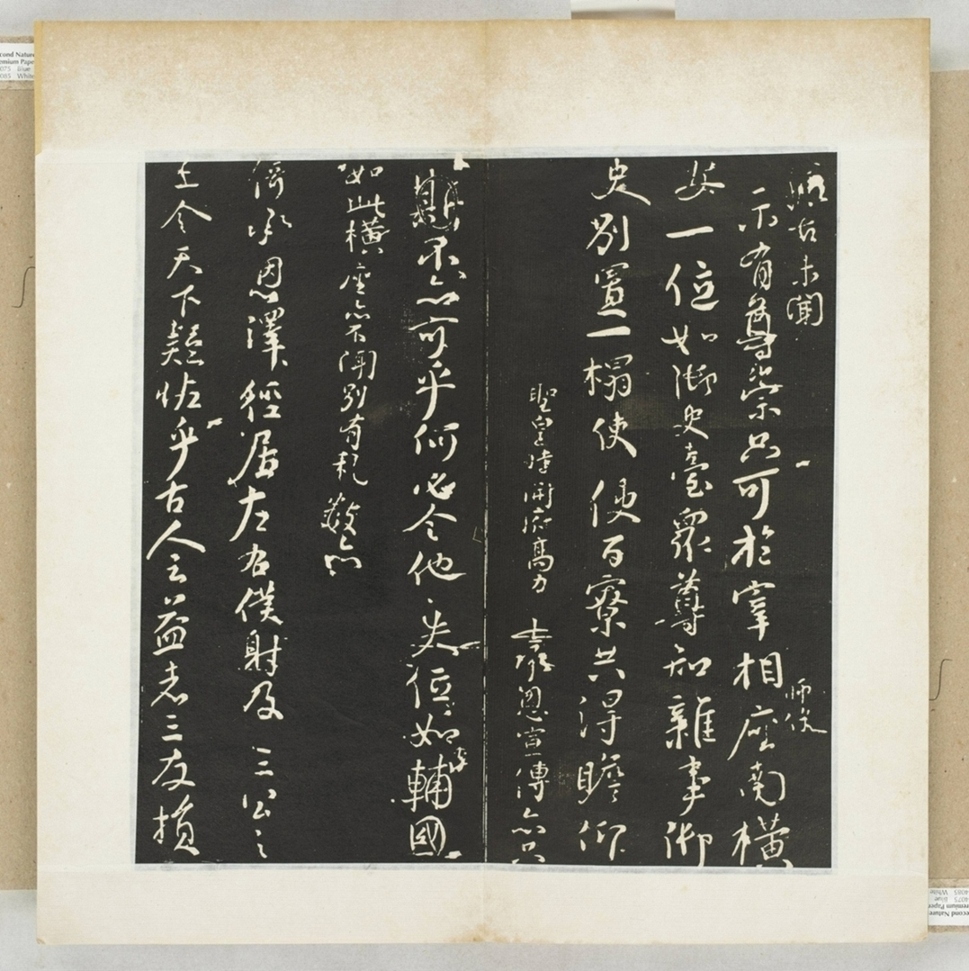 古未聞
師保
示有尊崇只可於宰相座南橫
安一位如御史臺眾尊知雜事御
史別置一榻使使百寮共得瞻仰
聖皇時開府高力士承恩宣傳亦只
不亦可乎何必令他失位如李輔國
如此橫座亦不聞別有礼數亦
倚承恩澤徑居左右僕射及三公之
上令天下疑恠乎古人云益者三友損